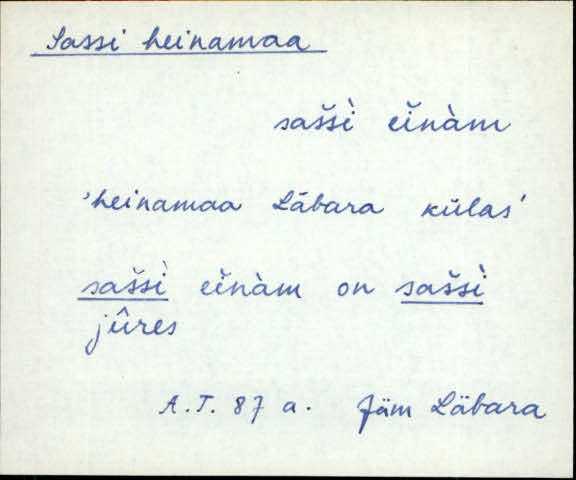 Sassi heinamaa
saššì̬ eĭnàm
'heinamaa Läbara külas'
saššì̬ eĭnàm on saššì̬
jûres
A.T. 87 a. Jäm Läbara